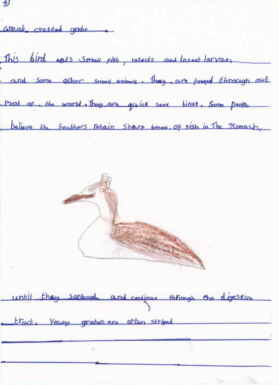 Great crested grebe.
This bird eats small fish, insects and insect larvae,
and some other small animals. They are found through out
most of the world. They are quite rare birds. Some people
believe the feathers retain sharp bones of fish in the stomach,
until they softened and continue through the digestive
tract. Young grebes are often striped